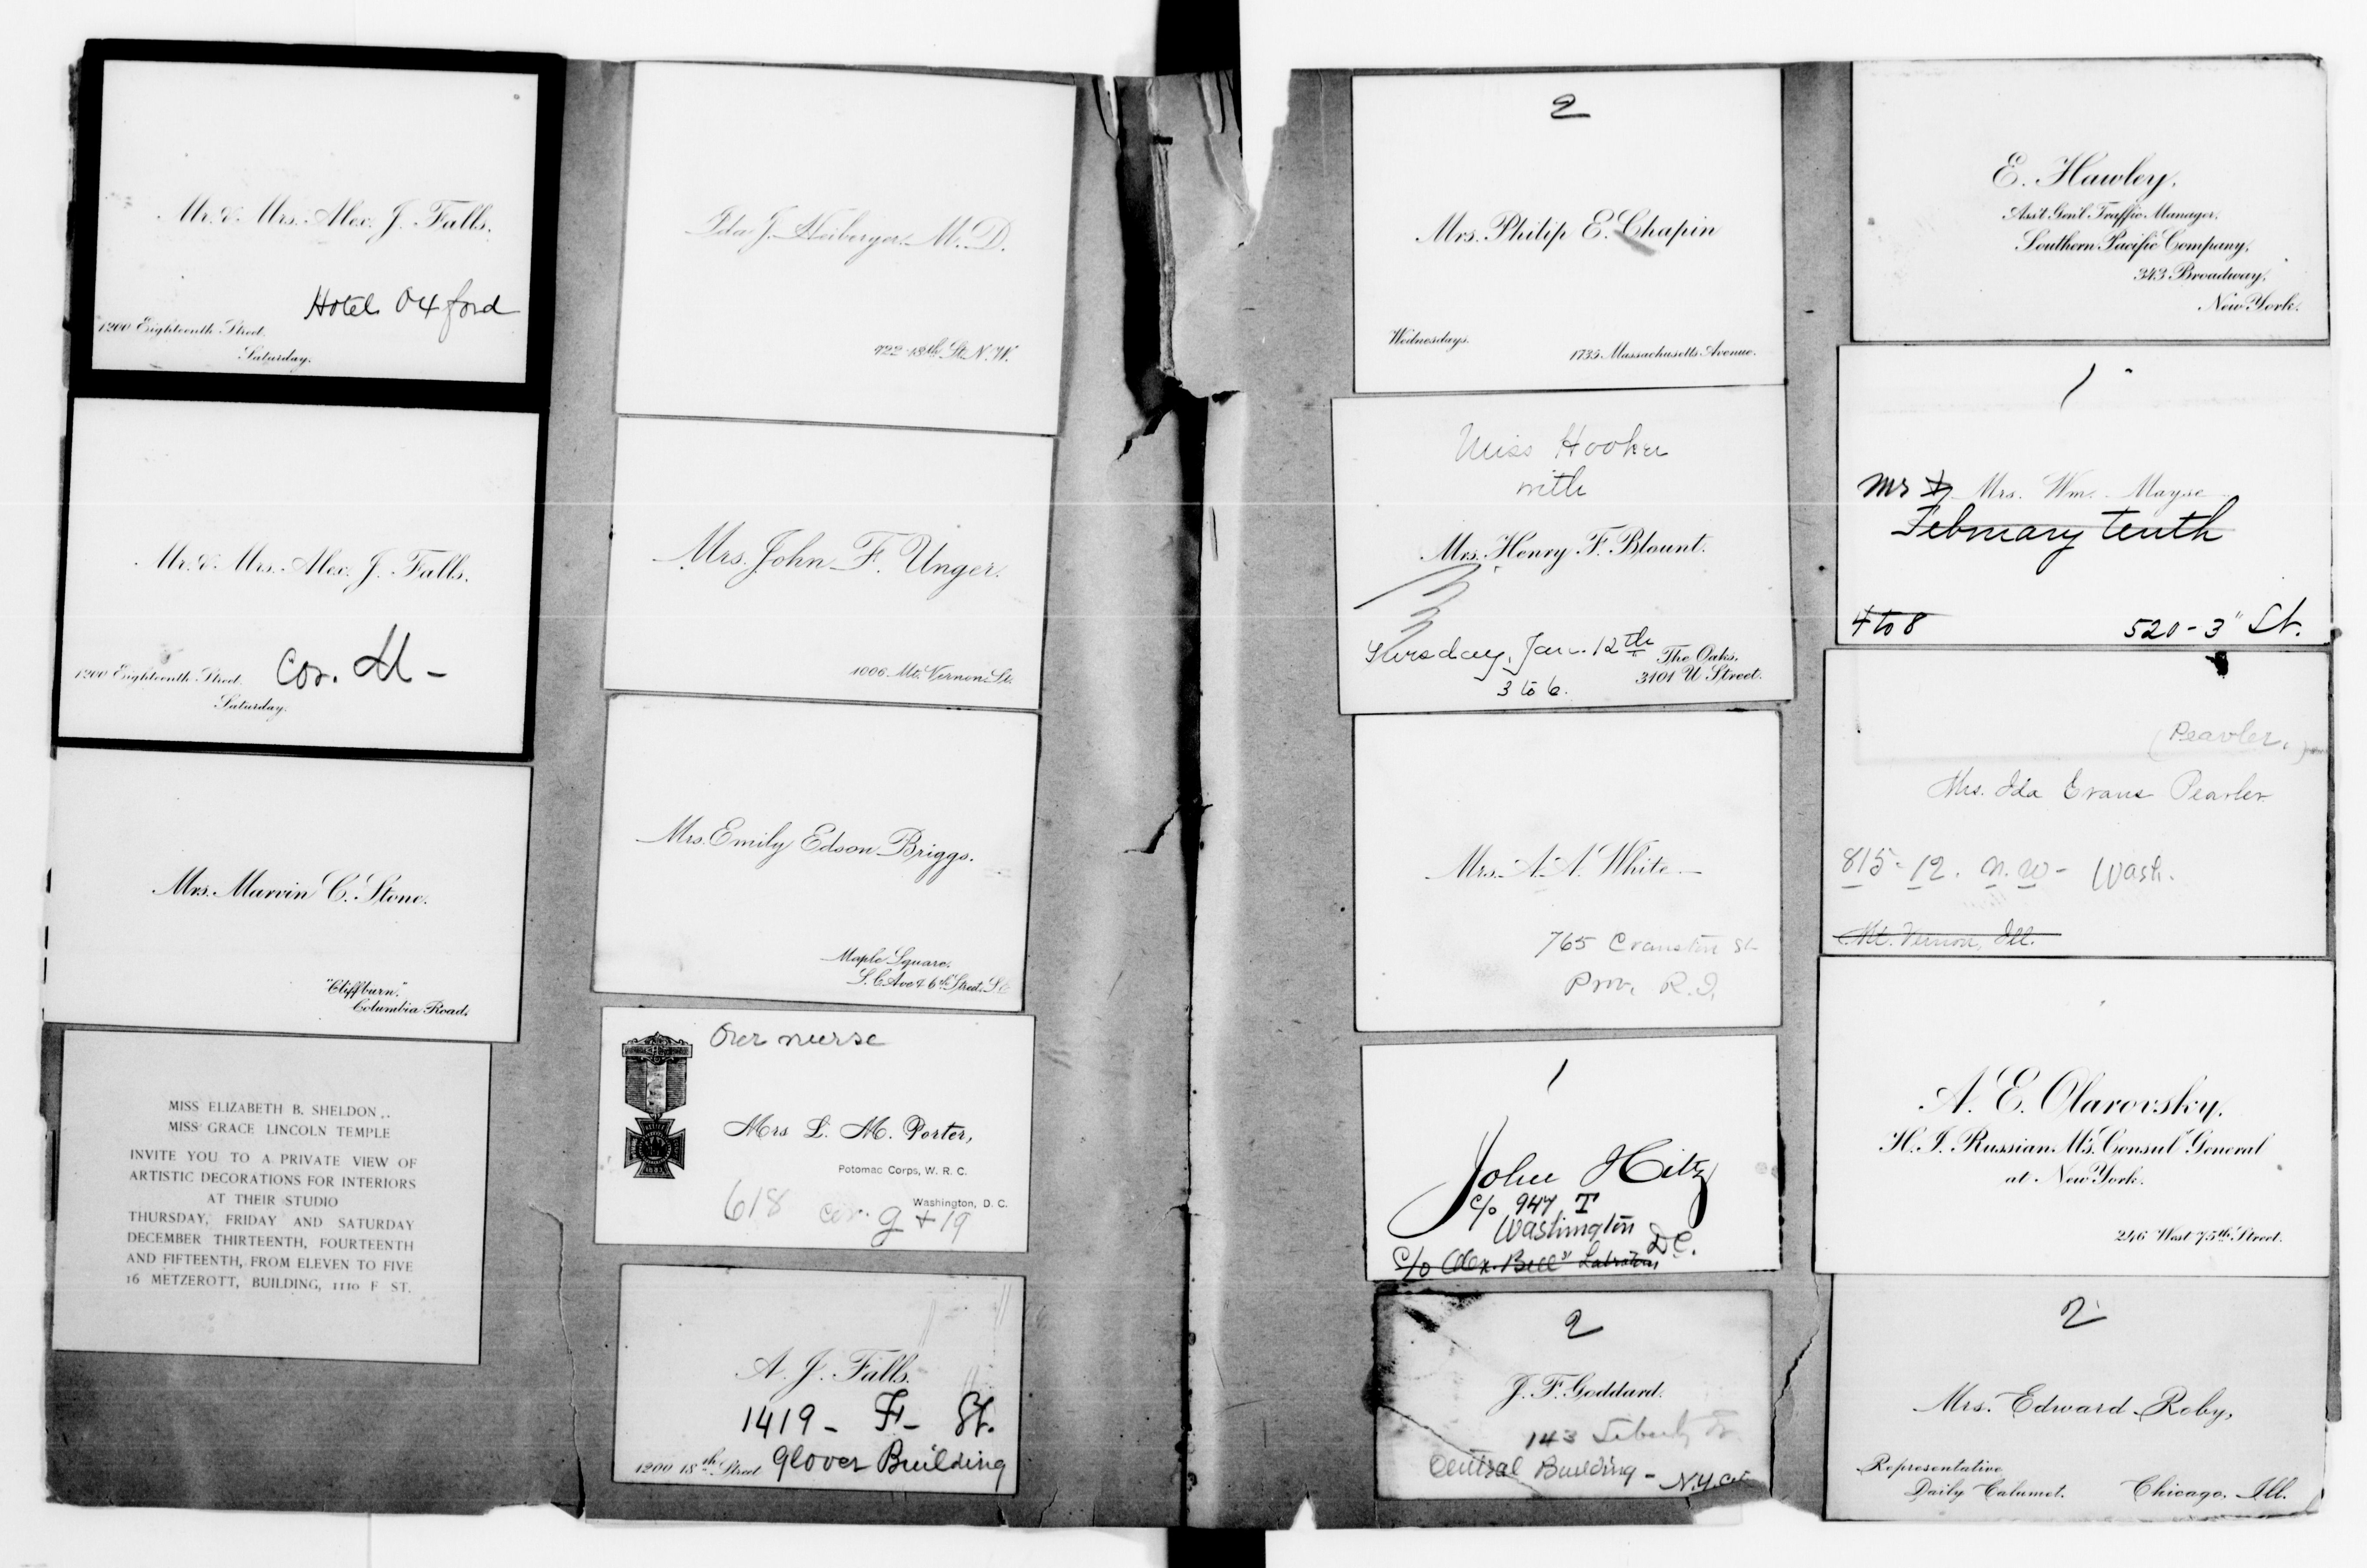 Mr. & Mrs. Alex. J. Falls.
Hotel Oxford
1200 Eighteenth Street.
Saturday.
Mr. & Mrs. Alex. J. Falls.
Cor. M -
1200 Eighteenth Street.
Saturday.
Mrs. Marvin C. Stone.
"Cliffburn".
Columbia Road.
MISS ELIZABETH B. SHELDON..
MISS GRACE LINCOLN TEMPLE
INVITE YOU TO A PRIVATE VIEW OF
ARTISTIC DECORATIONS FOR INTERIORS
AT THEIR STUDIO
THURSDAY, FRIDAY AND SATURDAY
DECEMBER THIRTEENTH, FOURTEENTH
AND FIFTEENTH, FROM ELEVEN TO FIVE
16 METZEROTT, BUILDING, 1110 F ST.
Ida J. Heiberger. M. D.
722 13th St. N. W.
Mrs. John F. Unger.
1006 Mt. Vernon St.
Mrs. Emily Edson Briggs.
Maple Square.
S. C. Ave & 6th Street. S E
Our nurse
Mrs L. M. Porter,
Potomac Corps, W. R. C.
Washington, D. C.
618 cor. g + 19
A. J. Falls.
1419 - F - St.
1200 18th Street Glover Building
2
Mrs. Philip E. Chapin
Wednesdays.
1735 Massachusetts Avenue.
Miss Hooker
with
Mrs. Henry F. Blount.
Tuesday, Jan. 12th
3 to 6.
The Oaks,
3101 U Street.
Mrs. A. A. White
765 Cranston St
Prov. R. I.
1
John Hitz
c/o 947 T
Washington
D.C.
c/o Alex. Bell's Labratory
2
J. F. Goddard.
143 Liberty St.
Central Building - N.Y.
E. Hawley,
Ass't Gen'l Traffic Manager,
Southern Pacific Company,
343 Broadway,
New York.
1
Mr & Mrs. Wm. Mayse
February tenth
4 to 8
520 - 3" St.
(Peavler,
Mrs. Ida Evans Peavler
815 - 12. N. W - Wash.
Mt. Vernon, Ill.
A. E. Olarovsky.
H. I. Russian M's. Consul General
at New York.
246 West 75th Street.
2
Mrs. Edward Roby,
Representative
Daily Calumet.
Chicago, Ill.